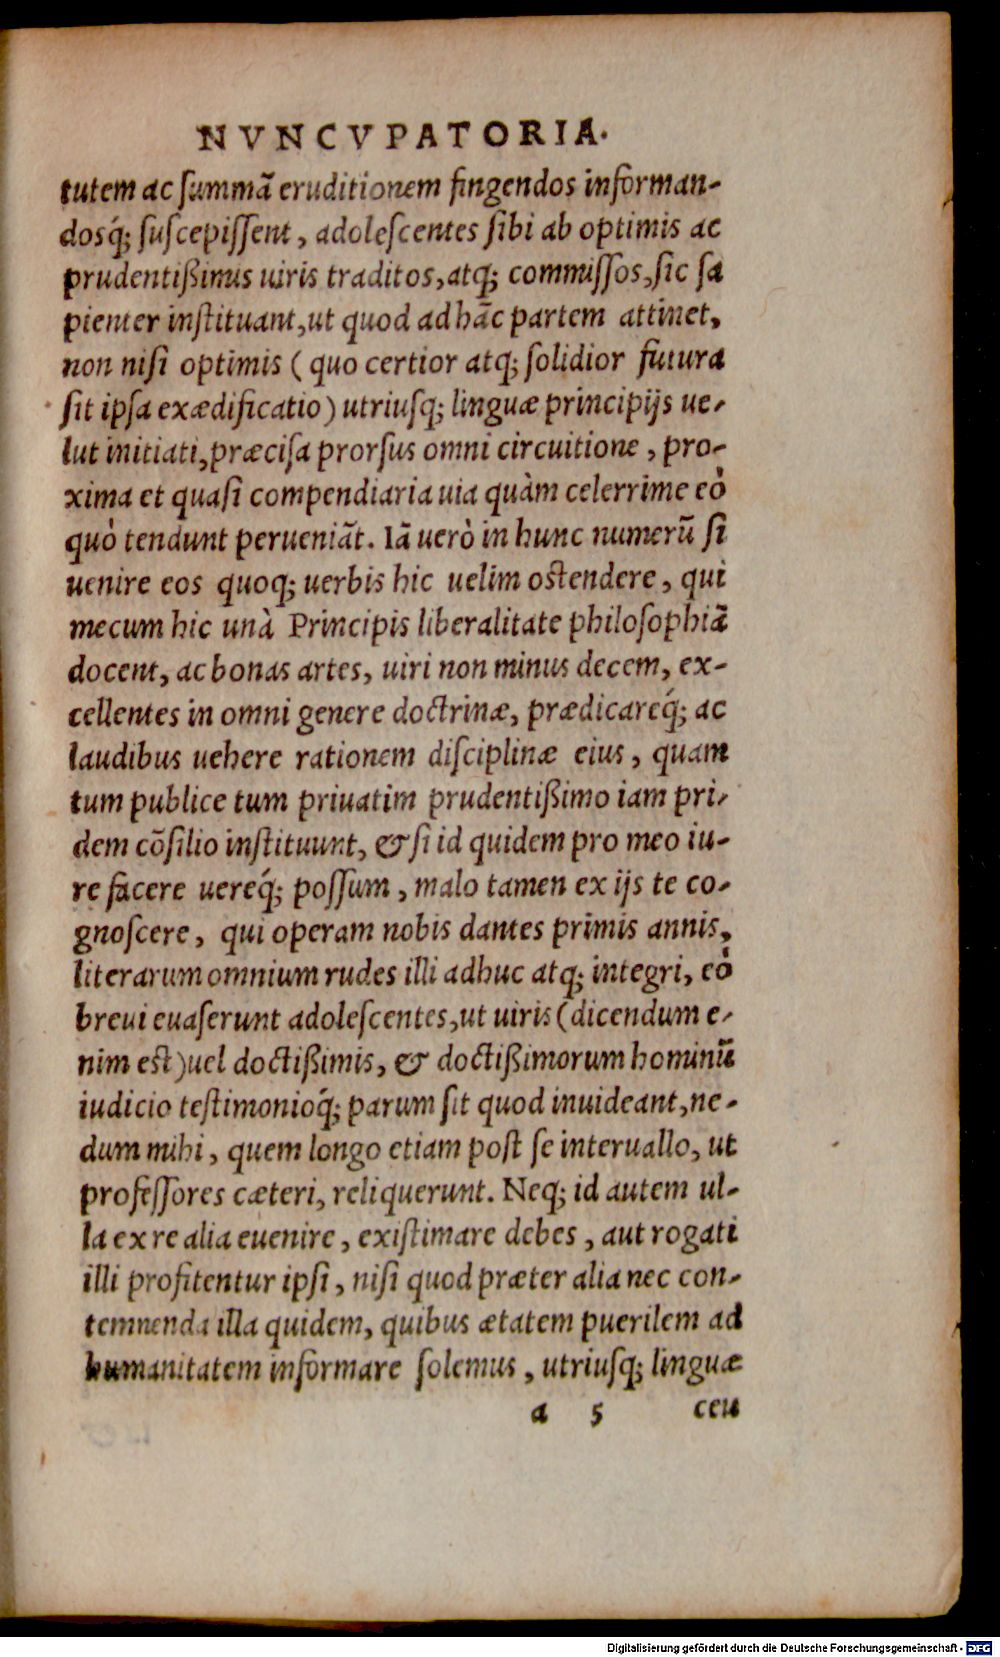 NVNCVPATORIA.
tutem ac ſummā eruditionem fingendos informan-
dosq́; ſuſcepiſſent, adoleſcentes ſibi ab optimis ac
prudentißimis uiris traditos, atq; commiſſos, ſic ſa
pienter inſtituant, ut quod ad hāc partem attinet,
non niſi optimis (quo certior atq; ſolidior futura
ſit ipſa exædificatio) utriuſq; linguæ principijs ue-
lut initiati, præciſa prorſus omni circuitione, pro-
xima et quaſi compendiaria uia quàm celerrime eò
quò tendunt perueniāt. Iā uerò in hunc numerū ſi
uenire eos quoq; uerbis hic uelim oſtendere, qui
mecum hic unà Principis liberalitate philoſophiā
docent, ac bonas artes, uiri non minus decem, ex-
cellentes in omni genere doctrinæ, prædicareq́; ac
laudibus uehere rationem diſciplinæ eius, quam
tum publice tum priuatim prudentißimo iam pri-
dem cōſilio inſtituunt, & ſi id quidem pro meo iu-
re facere uereq́; poſſum, malo tamen ex ijs te co-
gnoſcere, qui operam nobis dantes primis annis,
literarum omnium rudes illi adhuc atq; integri, eò
breui euaſerunt adoleſcentes, ut uiris (dicendum e-
nim eſt) uel doctißimis, & doctißimorum hominū
iudicio teſtimonioq́; parum ſit quod inuideant, ne-
dum mihi, quem longo etiam poſt ſe interuallo, ut
profeſſores cæteri, reliquerunt. Neq; id autem ul-
la ex re alia euenire, exiſtimare debes, aut rogati
illi profitentur ipſi, niſi quod præter alia nec con-
temnenda illa quidem, quibus ætatem puerilem ad
humanitatem informare ſolemus, utriuſq; linguæ
a 5 ceu
Digitalisierung gefördert durch die Deutsche Forschungsgemeinschaft - DFG